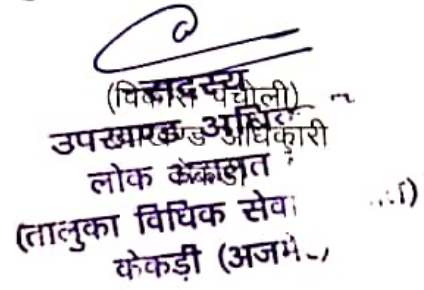 सदस्य
(विकास पंचोली)
उपखण्ड अधिकारी
लोक अदालत
केकड़ी
(तालुका विधिक सेवा
केकड़ी (अजमे